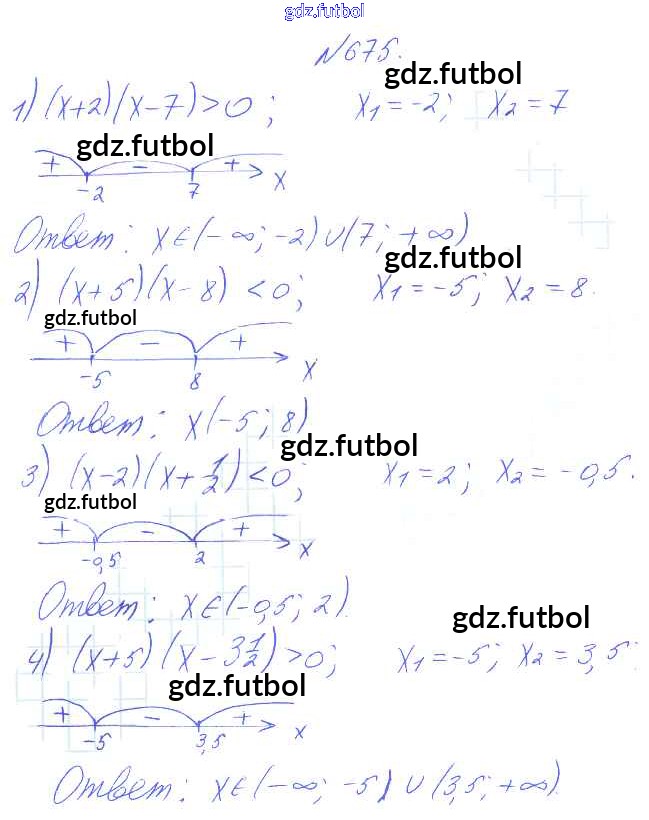 gdz.futbol
№675.
gdz.futbol
1) (x+2)(x-7)>0; x₁=-2; x₂=7
gdz.futbol
+ - +
-2 7 x
Ответ: x∈(-∞; -2)∪(7; +∞)
gdz.futbol
2) (x+5)(x-8)<0; x₁=-5; x₂=8.
gdz.futbol
+ - +
-5 8 x
Ответ: x(-5; 8)
gdz.futbol
3) (x-2)(x+1/2)<0; x₁=2; x₂=-0,5.
gdz.futbol
+ - +
-0,5 2 x
Ответ: x∈(-0,5; 2).
gdz.futbol
4) (x+5)(x-3 1/2)>0; x₁=-5; x₂=3,5.
gdz.futbol
+ - +
-5 3,5 x
Ответ: x∈(-∞; -5)∪(3,5; +∞).